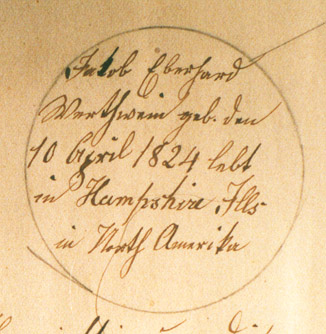 Jakob Eberhard
Werthwein geb. den
10 April 1824 lebt
in Hampshire Ills
in North Amerika